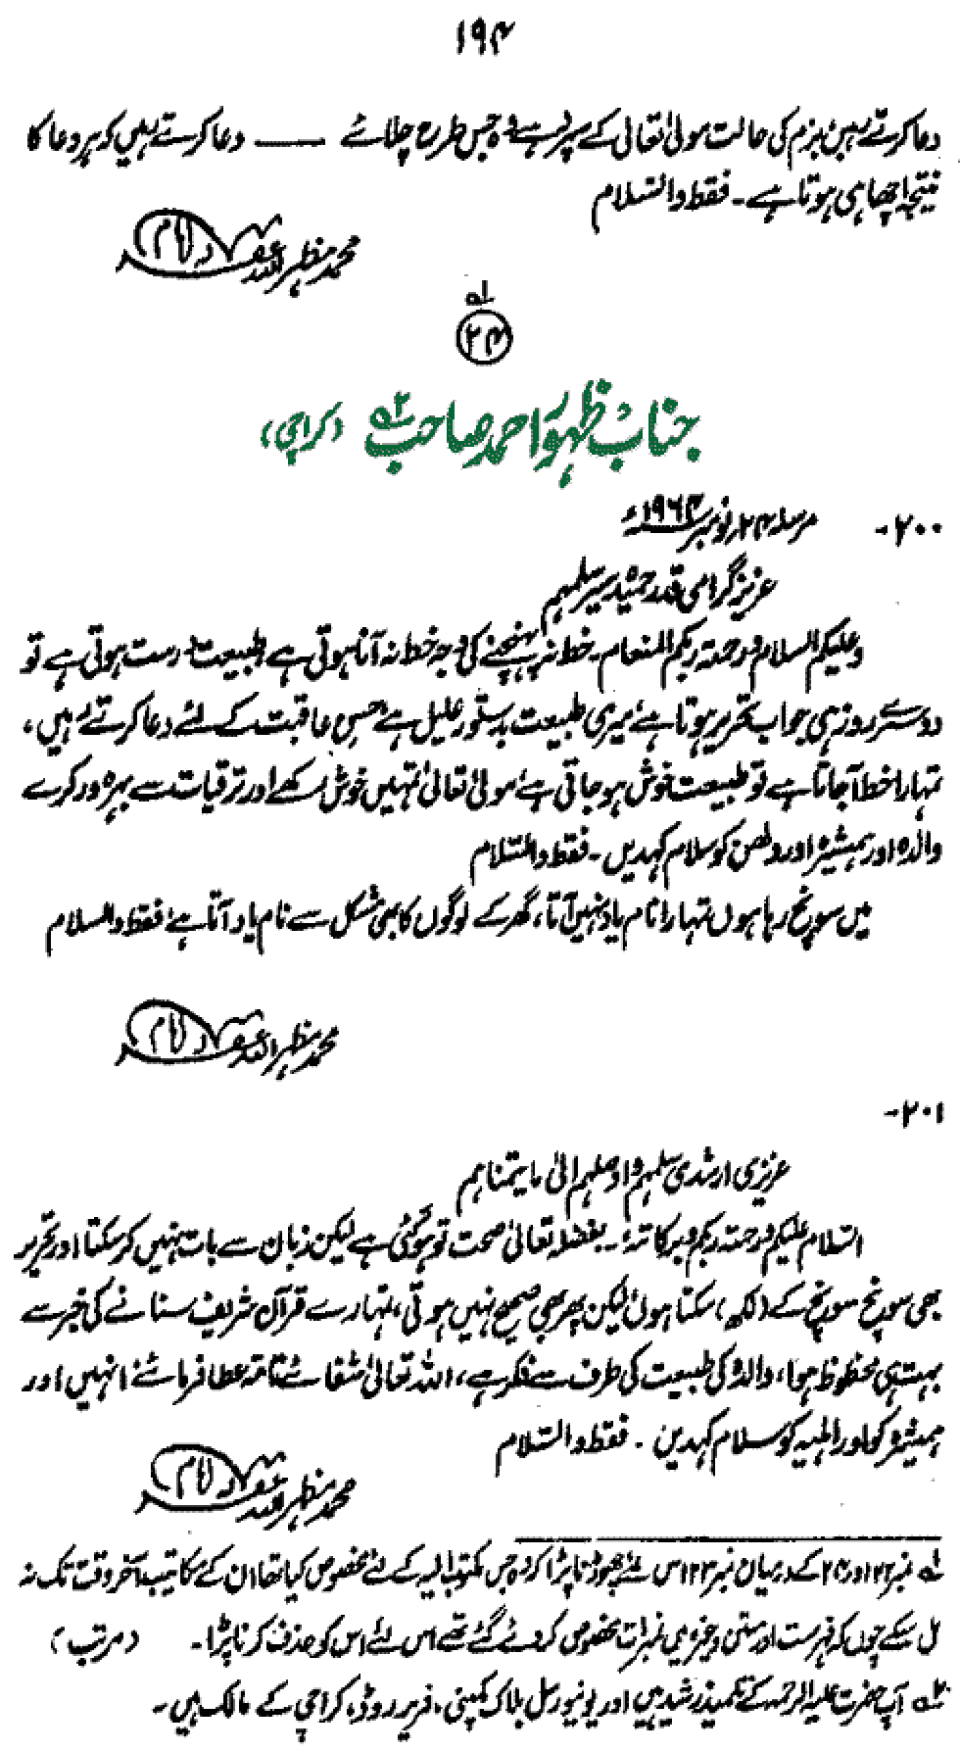 ۱۹۴
دعا کرتے رہیں بزم کی حالت مولیٰ تعالیٰ کے سپرد ہے وہ جس طرح چلائے —— دعا کرتے ہیں کہ ہر دعا کا
نتیجہ اچھا ہی ہوتا ہے۔ فقط والسّلام
محمد مظہر اللہ غفرلہ امام
۱ے
(۲۴)
جناب ظہور احمد صاحب ۲ے (کراچی)
۲۰۰-
مرسلہ ۲۴ نومبر ۱۹۶۴ء
عزیز گرامی قدر حمید سیر سلمہم
وعلیکم السلام ورحمۃ ربکم المنعام۔ خط نہ پہنچنے کی وجہ خط نہ آنا ہوتی ہے طبیعت درست ہوتی ہے تو
دوسرے روز ہی جواب تحریر ہوتا ہے، میری طبیعت بدستور علیل ہے حسنِ عاقبت کے لئے دعا کرتے رہیں،
تمہارا خط آجاتا ہے تو طبیعت خوش ہو جاتی ہے، مولیٰ تعالیٰ تمہیں خوش رکھے اور ترقیات سے بہرہ ور کرے
والدہ اور ہمشیرہ اور دلھن کو سلام کہدیں۔ فقط والسّلام
میں سوچ رہا ہوں تمہارا نام یاد نہیں آتا، گھر کے لوگوں کا بھی مشکل سے نام یاد آتا ہے، فقط والسلام
محمد مظہر اللہ غفرلہ امام
۲۰۱-
عزیزی ارشدی سلمہم واوصلہم الیٰ مایتمناہم
السّلام علیکم ورحمۃ ربکم وبرکاتہٗ۔ بفضلہ تعالیٰ صحت تو ہوگئی ہے لیکن زبان سے بات نہیں کر سکتا اور تحریر
بھی سوچ سوچ کے (لکھ) سکتا ہوں لیکن پھر بھی صحیح نہیں ہوتی، تمہارے قرآن شریف سنانے کی خبر سے
بہت ہی محظوظ ہوا، والدہ کی طبیعت کی طرف سے فکر ہے، اللہ تعالیٰ شفائے تامہ عطا فرمائے انہیں اور
ہمشیرہ کو اور اہلیہ کو سلام کہدیں۔ فقط والسّلام
محمد مظہر اللہ غفرلہ امام
۱ے نمبر ۲۲ اور ۲۴ کے درمیان نمبر ۲۳ اس لئے چھوڑنا پڑا کہ وہ جس مکتوب الیہ کے لئے مخصوص کیا تھا ان کے مکاتیب آخر وقت تک نہ
مل سکے چوں کہ فہرست اور متن وغیرہ میں نمبرات مخصوص کر دئے گئے تھے اس لئے اس کو حذف کرنا پڑا۔ (مرتب)
۲ے آپ حضرت علیہ الرحمہ کے تلمیذ رشید ہیں اور یونیورسل بلاک کمپنی، فریر روڈ، کراچی کے مالک ہیں۔